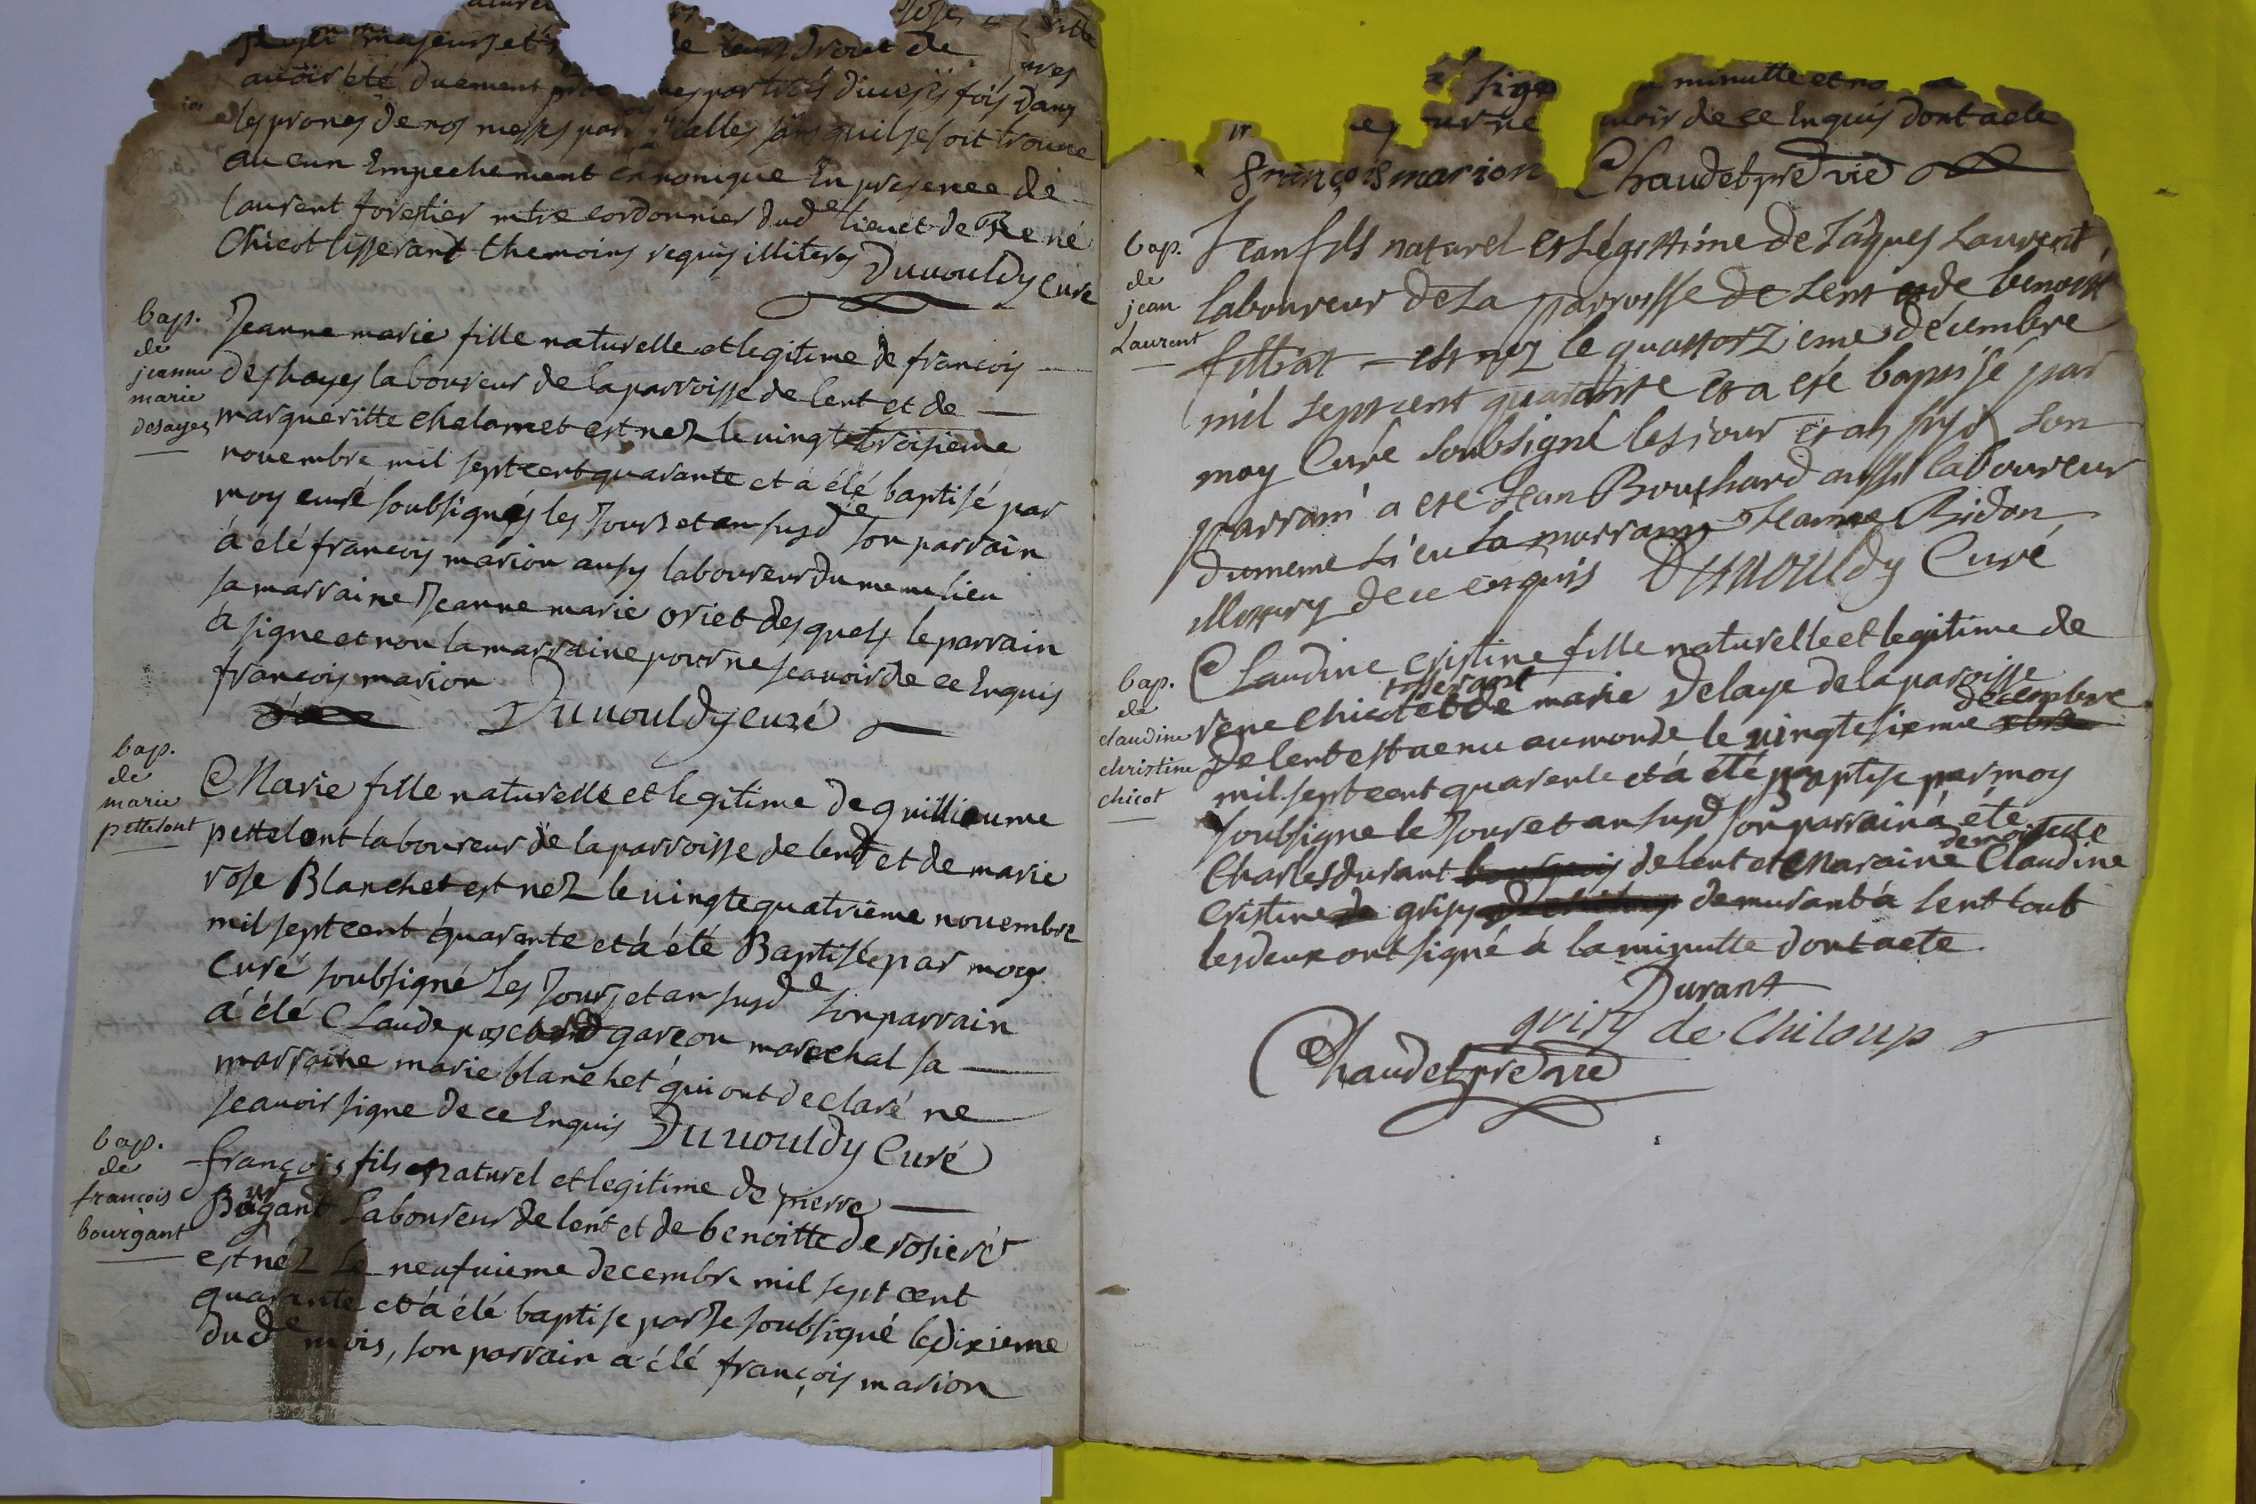 majeurs et de leurs droit de
avoir été duement par trois diverses fois dans
les prones de nos messes sans quil se soit trouvé
aucun Empechement cannonique En presence de
laurent forestier mtre cordonnier dude lieu et de René
Chicot tisserant themoins requis illiteres Duvouldy curé
bap.
de
jeanne
marie
desayes
Jeanne marie fille naturelle et legitime de françois
deshayes laboureur de la parroisse de lent et de
margueritte chalamet est nez le vingt troisieme
novembre mil sept cent quarante et a été baptisé par
moy curé soubsignés les Jours et an susde son parrain
à été françois marion ausy laboureur du meme lieu
sa marraine Jeanne marie oriet desquels le parrain
à signe et non la marraine pour ne scavoir de ce Enquis
françois marion
Duvouldy curé
bap.
de
marie
pettelont
Marie fille naturelle et legitime de guillioume
pettelont laboureur de la parroisse de lent et de marie
rose Blanchet est nez le vingte quatrieme novembre
mil sept cent quarante et à été Baptisé par moy
curé soubsigné Les Jours et an susde son parrain
à été Claude garçon marechal sa
marraine marie blanchet qui ont declaré ne
scavoir signe de ce Enquis Duvouldy Curé
bap.
de
françois
bourgant
françois fils Naturel et legitime de pierre
Burgant Laboureur de lent et de benoitte de rosieré
est nez Le neufvieme decembre mil sept cent
quarante et à été baptise par Je soubsigné le dixieme
dude mois, son parrain a été françois marion
minutte et
ne scavoir de ce Enquis dont acte
françois marion Chaudet pre vic
bap.
de
jean
Laurent
Jean fils naturel et Légittime de Jâques Laurent
laboureur de La parroisse de Lent et de benoist
fillliat est nez le quattorzieme décembre
mil sept cent quarante et a eté baptisé par
moy Curé soubsigné les jour et an susd son
parrain a ete Jean Bouchard aussi laboureur
du meme Lieu La marraine Jeanne Bidon
de ce enquis Duvouldy Curé
bap.
de
claudine
christine
chicot
Claudine cristine fille naturelle et legitime de
tisserant
rene chicot et de marie Delaye de la paroisse
decembre
de lent est venu au monde le vingte sixieme
mil sept cent quarente et à été baptise par moy
soubsigne le Jour et an susd son parrain à été
demoiselle
Charles durant de lent et Maraine Claudine
cristine grisy demurant à lent tout
les deux ont signé à la minutte dont acte
Durant
grisy de Chiloup
Chaudet pre vic